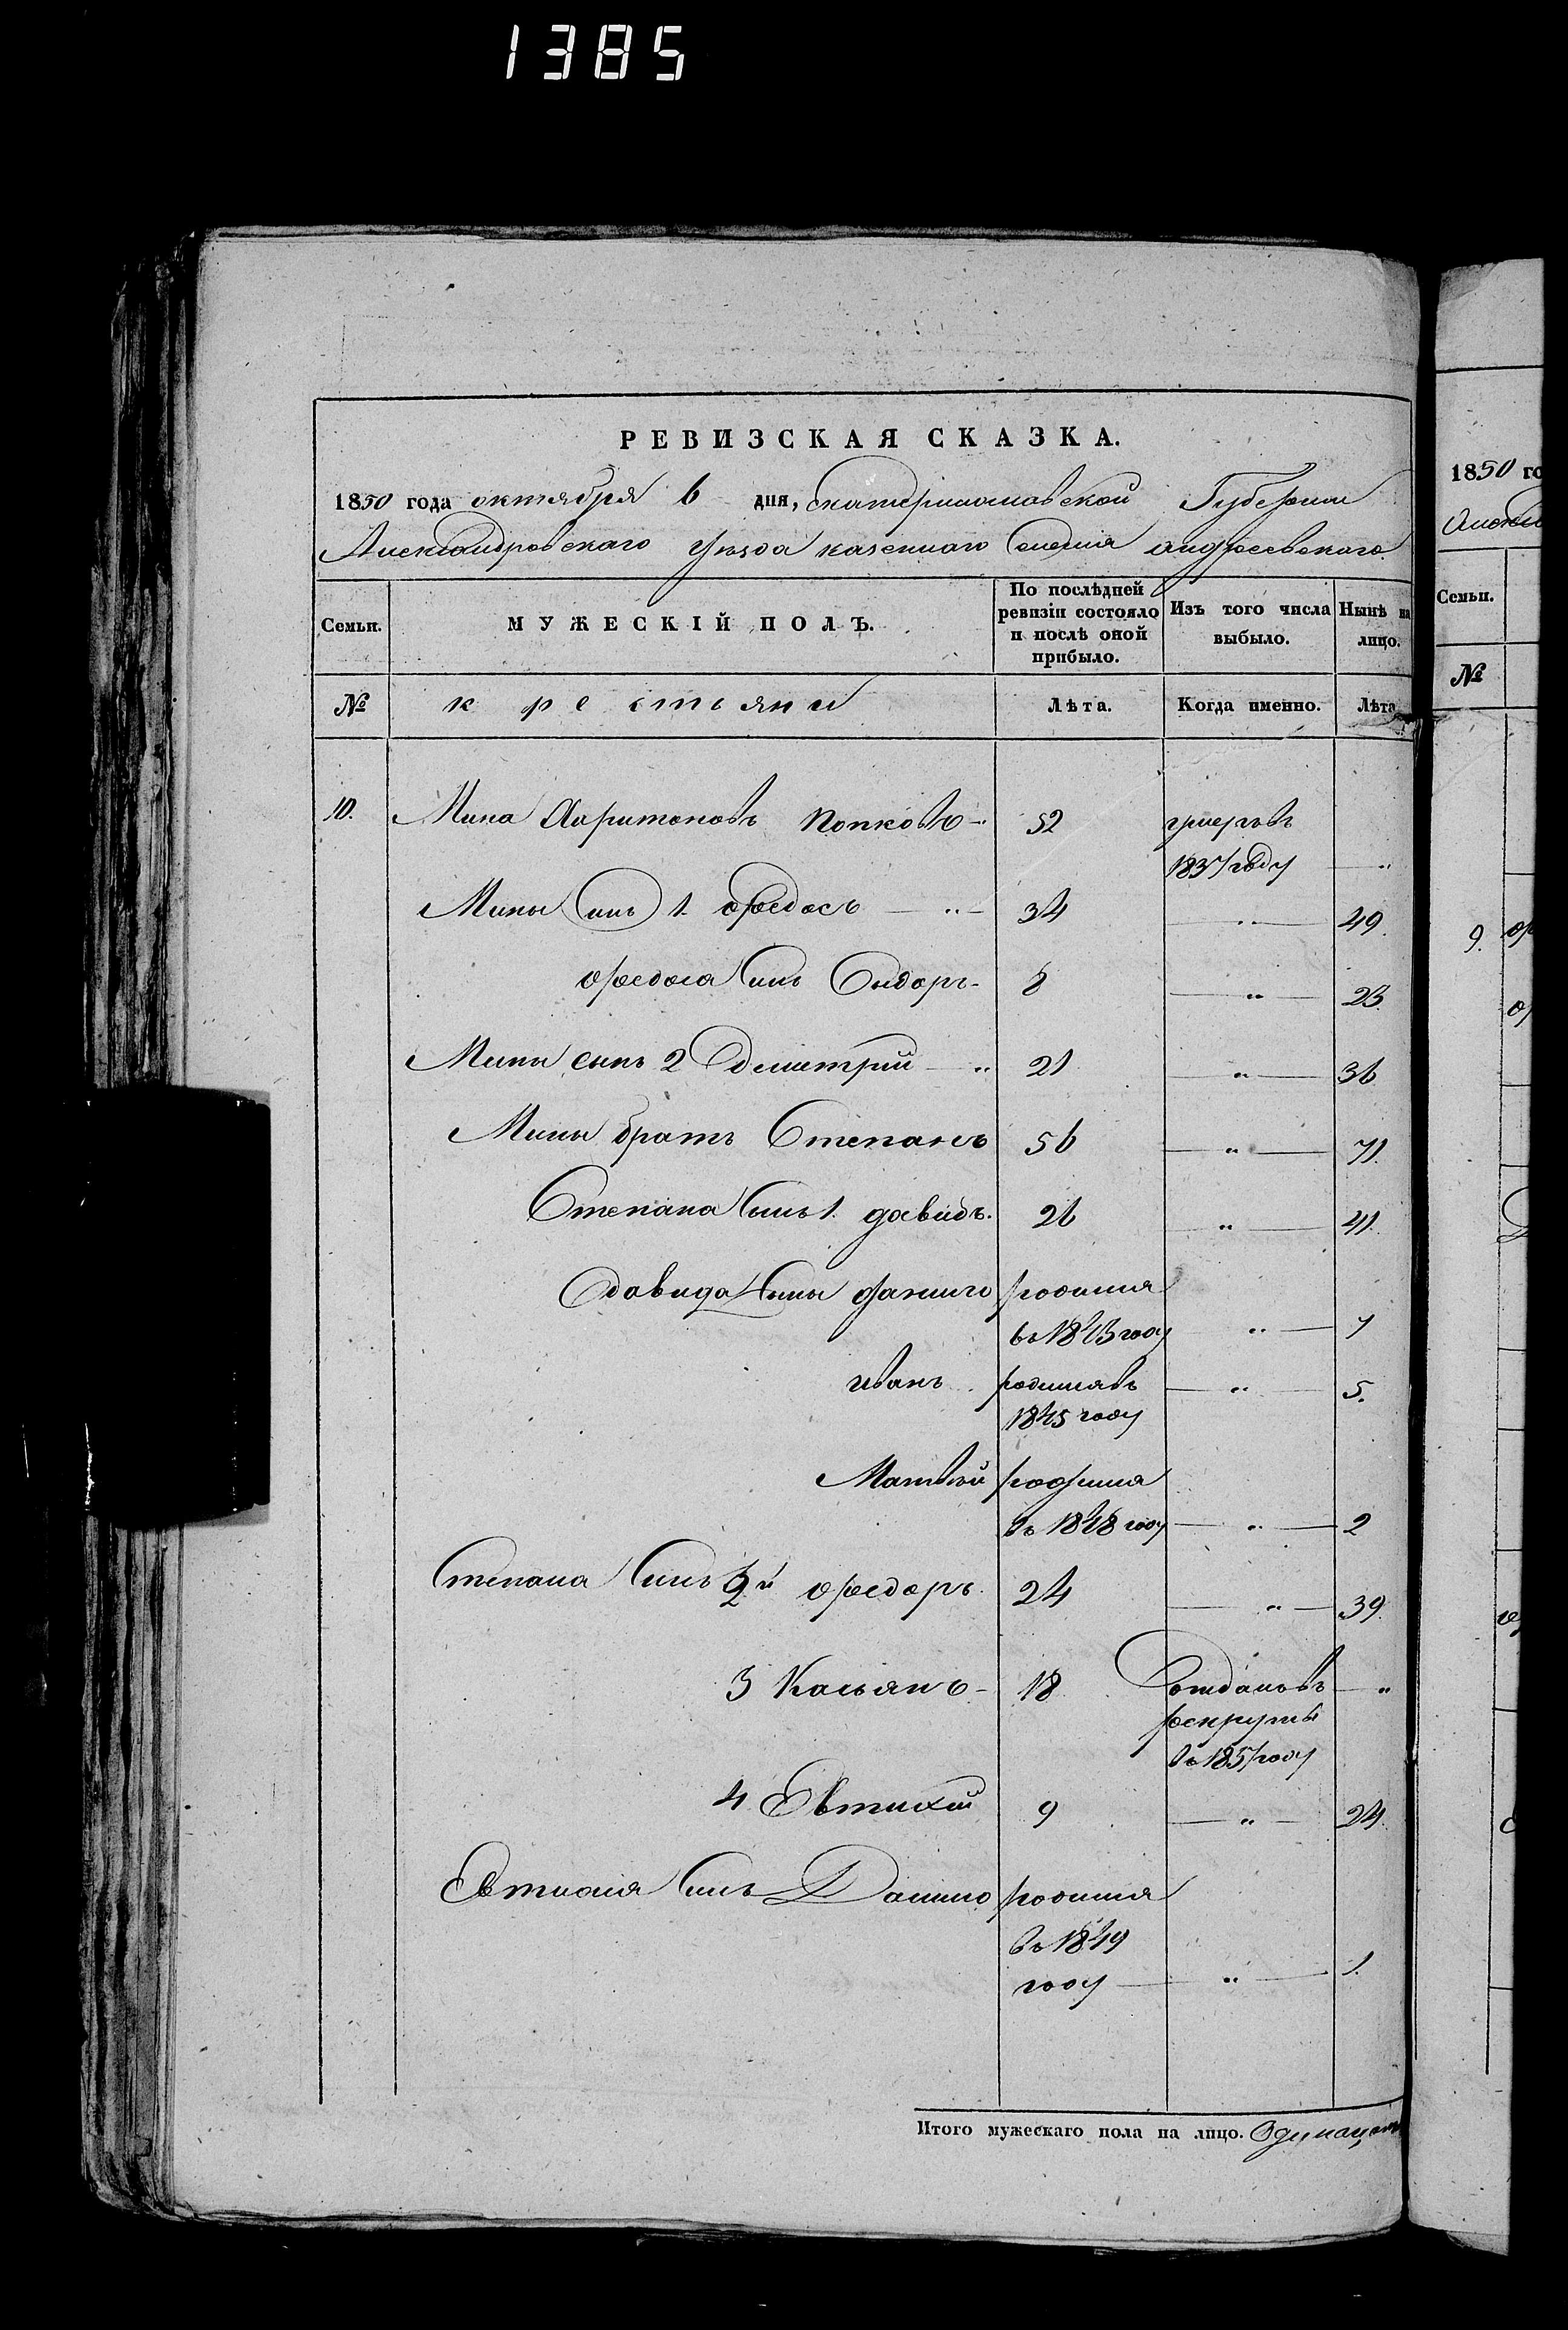 1385
РЕВИЗСКАЯ СКАЗКА.
1850 года октября 6 дня, Екатеринославской Губернии
Александровскаго Уѣзда казеннаго Селенія андреевскаго.
Семьи. МУЖЕСКІЙ ПОЛЪ. По послѣдней ревизіи состояло и послѣ оной прибыло. Изъ того числа выбыло. Нынѣ на лицо.
№ крестьяни Лѣта. Когда именно. Лѣта
10. Мина Харитоновъ Попковъ 52 умеръ въ
1837 году "
Мины Сынъ 1. Федосъ " 34 " 49.
Федоса Сынъ Сидоръ 8 " 23.
Мины сынъ 2 Дмитрий " 21 " 36
Мины братъ Степанъ 56 " 71.
Степана Сынъ 1. давидъ. 26 " 41.
Давида Сыны данило родился
въ 1843 году " 7
иванъ родился въ " 5.
1845 году
Матвѣй родился
въ 1848 году " 2
Степана Сынъ 2й Федоръ. 24 " 39.
3 Касьянъ 18 Отданъ въ "
рекруты
въ 1837 году
4 Евтихій 9 " 24.
Евтихія Сынъ Данило родился
въ 1849
году " 1.
Итого мужескаго пола на лицо. Одинацать
1850 го
Семьи.
№
9.